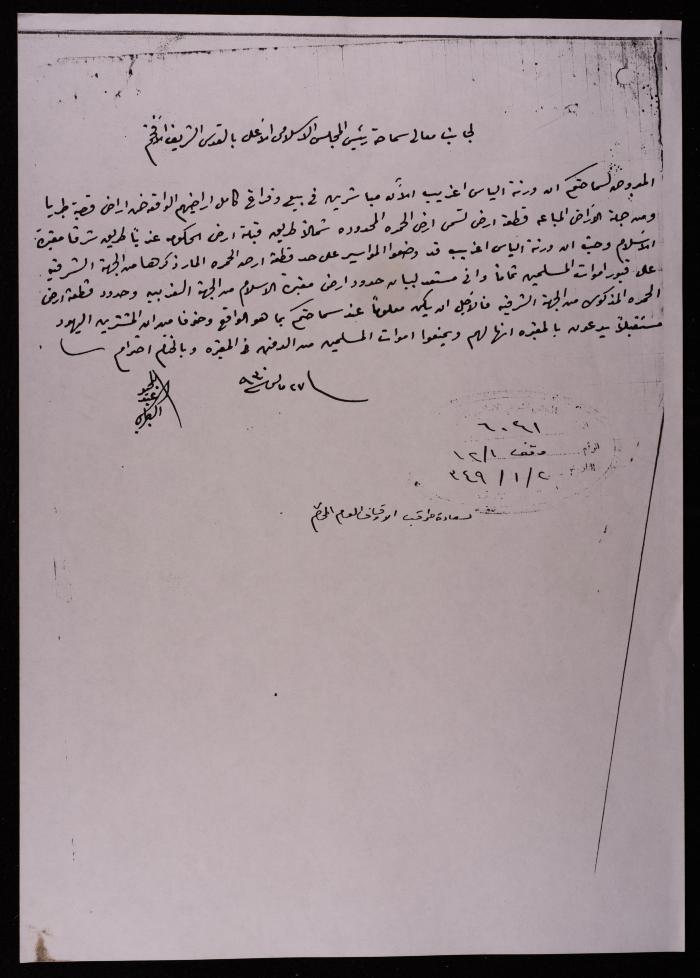 لجانب معالي سماحة رئيس المجلس الاسلامي الاعلى بالقدس الشريف الافخم
المعروض لسماحتكم ان ورثة الياس اغزيب الآن مباشرين في بيع وفراغ كامل اراضيهم الواقعة ضمن اراضي قصبة طبريا
ومن جملة الاراضي المباعة قطعة ارض تسمى ارض الحمره المحدوده شمالاً طريق قبلة ارض الحكومه غرباً طريق شرقاً مقبرة
الاسلام وحيث ان ورثة الياس اغزيب قد وضعوا المواسير على حد قطعة ارض الحمره المار ذكرها من الجهة الشرقيه
على قبور اموات المسلمين تماماً واني مستعد لبيان حدود ارض مقبرة الاسلام من الجهة الغربيه وحدود قطعة ارض
الحمره المذكور من الجهة الشرقيه فلأجل ان يكون معلوماً عند سماحتكم بما هو الواقع وخوفاً من ان المشترين اليهود
مستقبلاً يدعون بالمقبره انها لهم ويمنعوا اموات المسلمين من الدفن في المقبره وبالختام احترام
٢٧ مايس سنة ٩٣٠
عبد
٦٠٩١
الرقم وقف ١٢/١
٢/١/٣٤٩
لسعادة مراقب الاوقاف العام المحترم